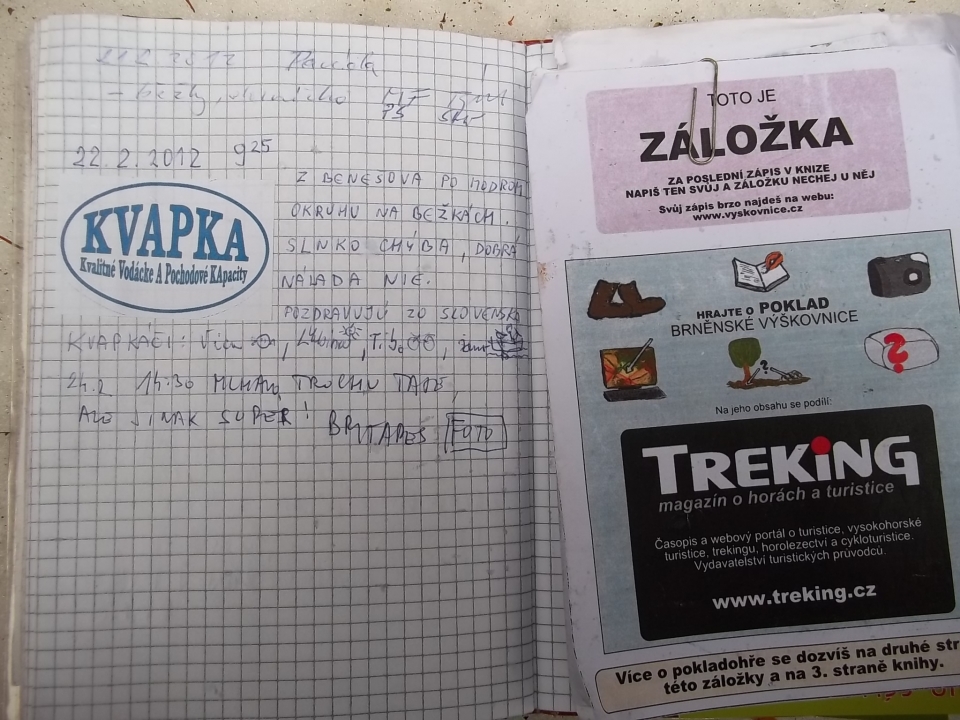 22.2.2012 9 25
Z BENEŠOVA PO MODROM
OKRUHU NA BEŽKÁCH.
SLNKO CHÝBA, DOBRÁ
NÁLADA NIE.
POZDRAVUJÚ ZO SLOVENSKA
KVAPKA
Kvalitné Vodácke A Pochodové KApacity
KVAPKÁČI:
24.2 14:30 MLHAVO, TROCHU TAJE,
ALE JINAK SUPER!
FOTO
TOTO JE
ZÁLOŽKA
ZA POSLEDNÍ ZÁPIS V KNIZE
NAPIŠ TEN SVŮJ A ZÁLOŽKU NECHEJ U NĚJ
Svůj zápis brzo najdeš na webu:
www.vyskovnice.cz
HRAJTE O POKLAD
BRNĚNSKÉ VÝŠKOVNICE
?
?
Na jeho obsahu se podílí:
TREKiNG
magazín o horách a turistice
Časopis a webový portál o turistice, vysokohorské
turistice, trekingu, horolezectví a cykloturistice.
Vydavatelství turistických průvodců.
www.treking.cz
Více o pokladohře se dozvíš na druhé str
této záložky a na 3. straně knihy.